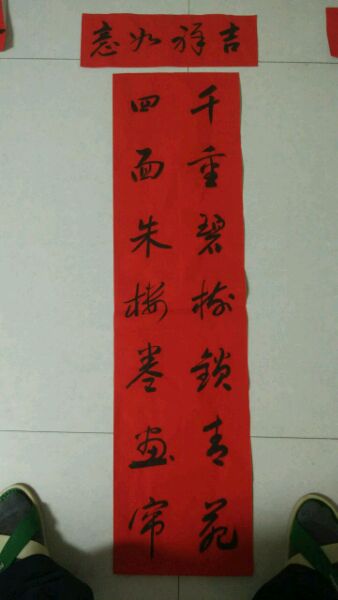 吉祥如意
千重碧榆鎖青苑
四面朱楼卷画帘